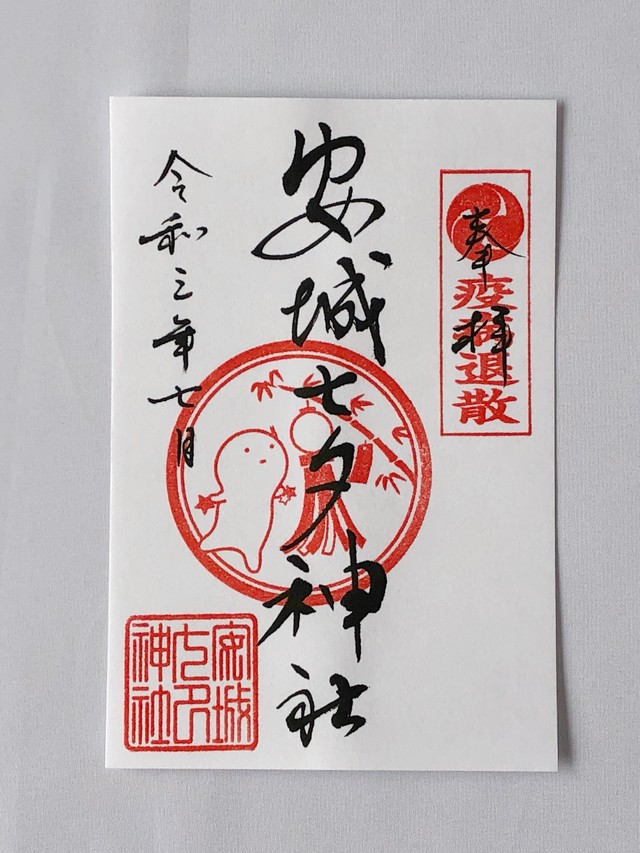 奉拝
疫病退散
安城七夕神社
令和三年七月
安城
七夕
神社